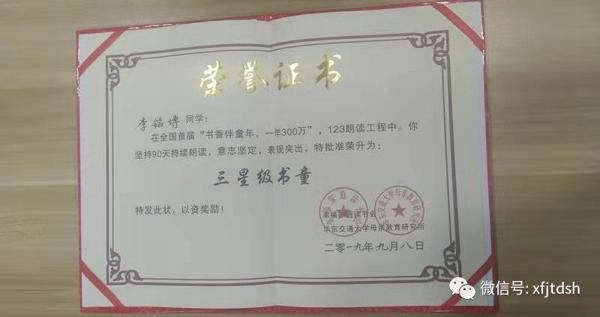 荣誉证书
李铭博 同学:
在全国首届“书香伴童年,一年300万”,123朗读工程中。你
坚持90天持续朗读,意志坚定,表现突出,特批准荣升为:
三星级书童
特发此状,以资奖励!
华东交通大学母亲教育研究所
二零一九年九月八日
微信号: xfjtdsh